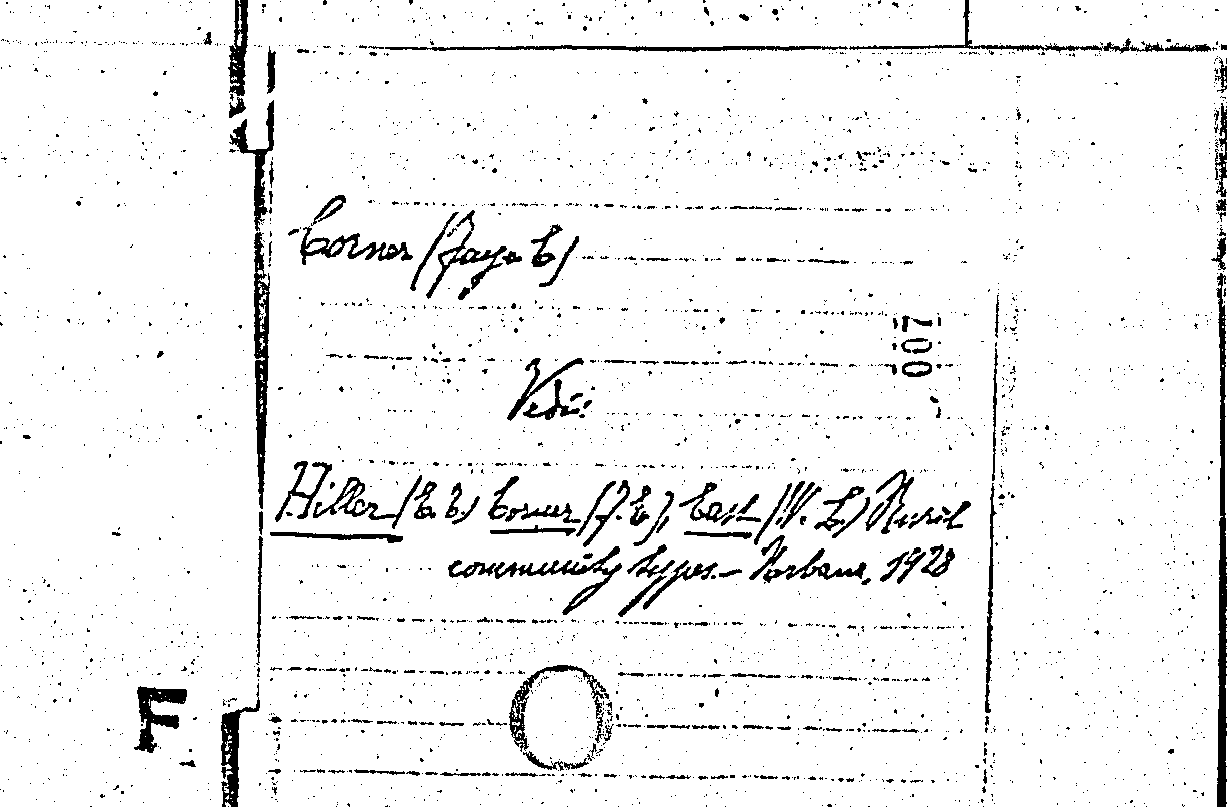 Corner (Faye E)
007
Vedi:
Hiller (E. E.) Corner (F. E.), East (W. L.) Rural
community types.- Urbana, 1928
F